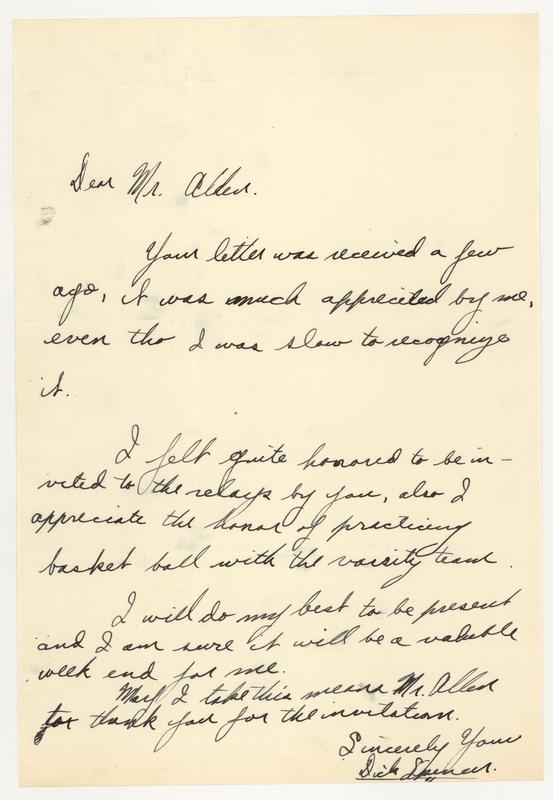 Dear Mr. Allen.
Your letter was received a few
ago, it was much apprecited by me,
even tho I was slow to recognize
it.
I felt quite honored to be in-
vited to the relays by you, also I
appreciate the honor of practicing
basket ball with the varsity team.
I will do my best to be present
and I am sure it will be a valuable
week end for me.
May I take this means Mr. Allen
to thank you for the invitation.
Sincerely Your
Dick Spencer.